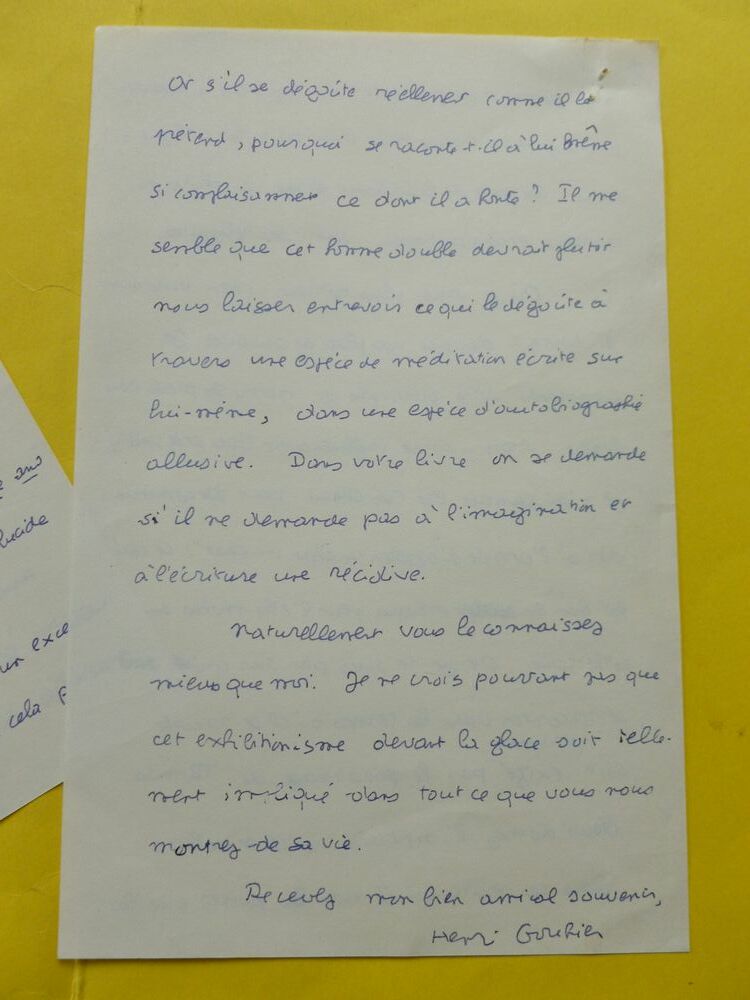 Or s'il se dégoûte réellement comme il le
prétend, pourquoi se raconte-t-il à lui même
si complaisamment ce dont il a honte ? Il me
semble que cet homme double devrait plutôt
nous laisser entrevoir ce qui le dégoûte à
travers une espèce de méditation écrite sur
lui-même, dans une espèce d'autobiographie
allusive. Dans votre livre on se demande
s'il ne demande pas à l'imagination et
à l'écriture une récidive.
Naturellement vous le connaissez
mieux que moi. Je ne crois pourtant pas que
cet exhibitionisme devant la glace soit telle-
ment impliqué dans tout ce que vous nous
montrez de sa vie.
Recevez mon bien amical souvenir,
Henri Gouhier
ans
lucide
exce
cela